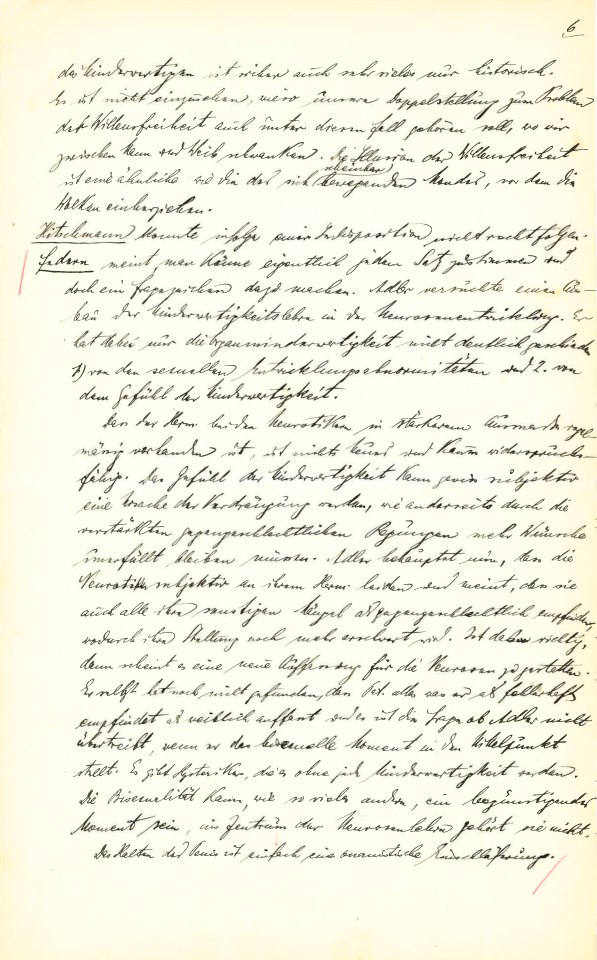 6
des Minderwertigen ist sicher auch sehr vieles nur historisch.
Es ist nicht einzusehen, wieso unsere Doppelstellung zum Problem
der Willensfreiheit auch unter diesen Fall gehören soll, wo wir
zwischen Mann und Weib schwanken. Die Illusion der Willensfreiheit
ist eine ähnliche wie die des sich scheinbar bewegenden Mondes, vor dem die
Wolken einherziehen.
Hitschmann konnte infolge einer Indisposition nicht recht folgen.
Federn meint, man könne eigentlich jedem Satz zustimmen und
doch ein Fragezeichen dazu machen. Adler versuchte einen Aus-
bau der Minderwertigkeitslehre in der Neurosenentwicklung. Er
hat dabei nur die Organminderwertigkeit nicht deutlich geschieden
1) von den sexuellen Entwicklungsabnormitäten und 2. von
dem Gefühl der Minderwertigkeit.
Dass der Herm. bei den Neurotikern in stärkerem Ausmasse regel-
mässig vorhanden ist, ist nichts Neues und kaum widerspruchs-
fähig. Das Gefühl der Minderwertigkeit kann gewiss subjektiv
eine Ursache der Verdrängung werden, wie anderseits durch die
verstärkten gegengeschlechtlichen Regungen mehr Wünsche
unerfüllt bleiben müssen. Adler behauptet nun, dass die
Neurotiker subjektiv an ihrem Herm. leiden und meint, dass sie
auch alle ihre sonstigen Mängel als gegengeschlechtlich empfinden,
wodurch ihre Stellung noch mehr erschwert wird. Ist das richtig,
dann scheint es eine neue Auffassung für die Neurosen zu gestatten.
Er selbst hat noch nicht gefunden, dass Pat. alles was er als fehlerhaft
empfindet als weiblich auffasst und es ist die Frage ob Adler nicht
übertreibt, wenn er das bisexuelle Moment in den Mittelpunkt
stellt. Es gibt Hysteriker, die es ohne jede Minderwertigkeit werden.
Die Bisexualität kann, wie so vieles andere, ein begünstigendes
Moment sein, ins Zentrum der Neurosenlehre gehört sie nicht.
Das Halten des Penis ist einfach eine onanistische Einschläferung.